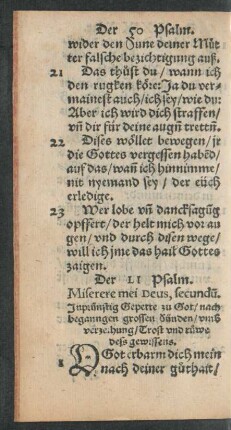 Der 50 Psalm.
wider den Sune deiner Müt
ter falsche bezichtigung auß.
21 Das thůst du / wann ich
den rugken köre: Ja du ver-
mainest auch / ich sey / wie du:
Aber ich wird dich straffen /
vñ dir für deine augñ trettñ.
22 Dises wöllet bewegen / jr
die Gottes vergessen habēd /
auf das / wañ ich hinnimme /
nit nyemand sey / der eüch
erledige.
23 Wer lobe vñ dancksagũg
opffert / der helt mich vor au
gen / vnd durch disen wege /
will ich jme das hail Gottes
zaigen.
Der LI Psalm.
Miserere mei Deus, secundũ.
Inprünstig Gepette zů Got / nach
begangngen grossen sünden / vmb
verzeihung / Trost vnd růwe
dess gewissens.
1 O Got erbarm dich mein
nach deiner gůthait /